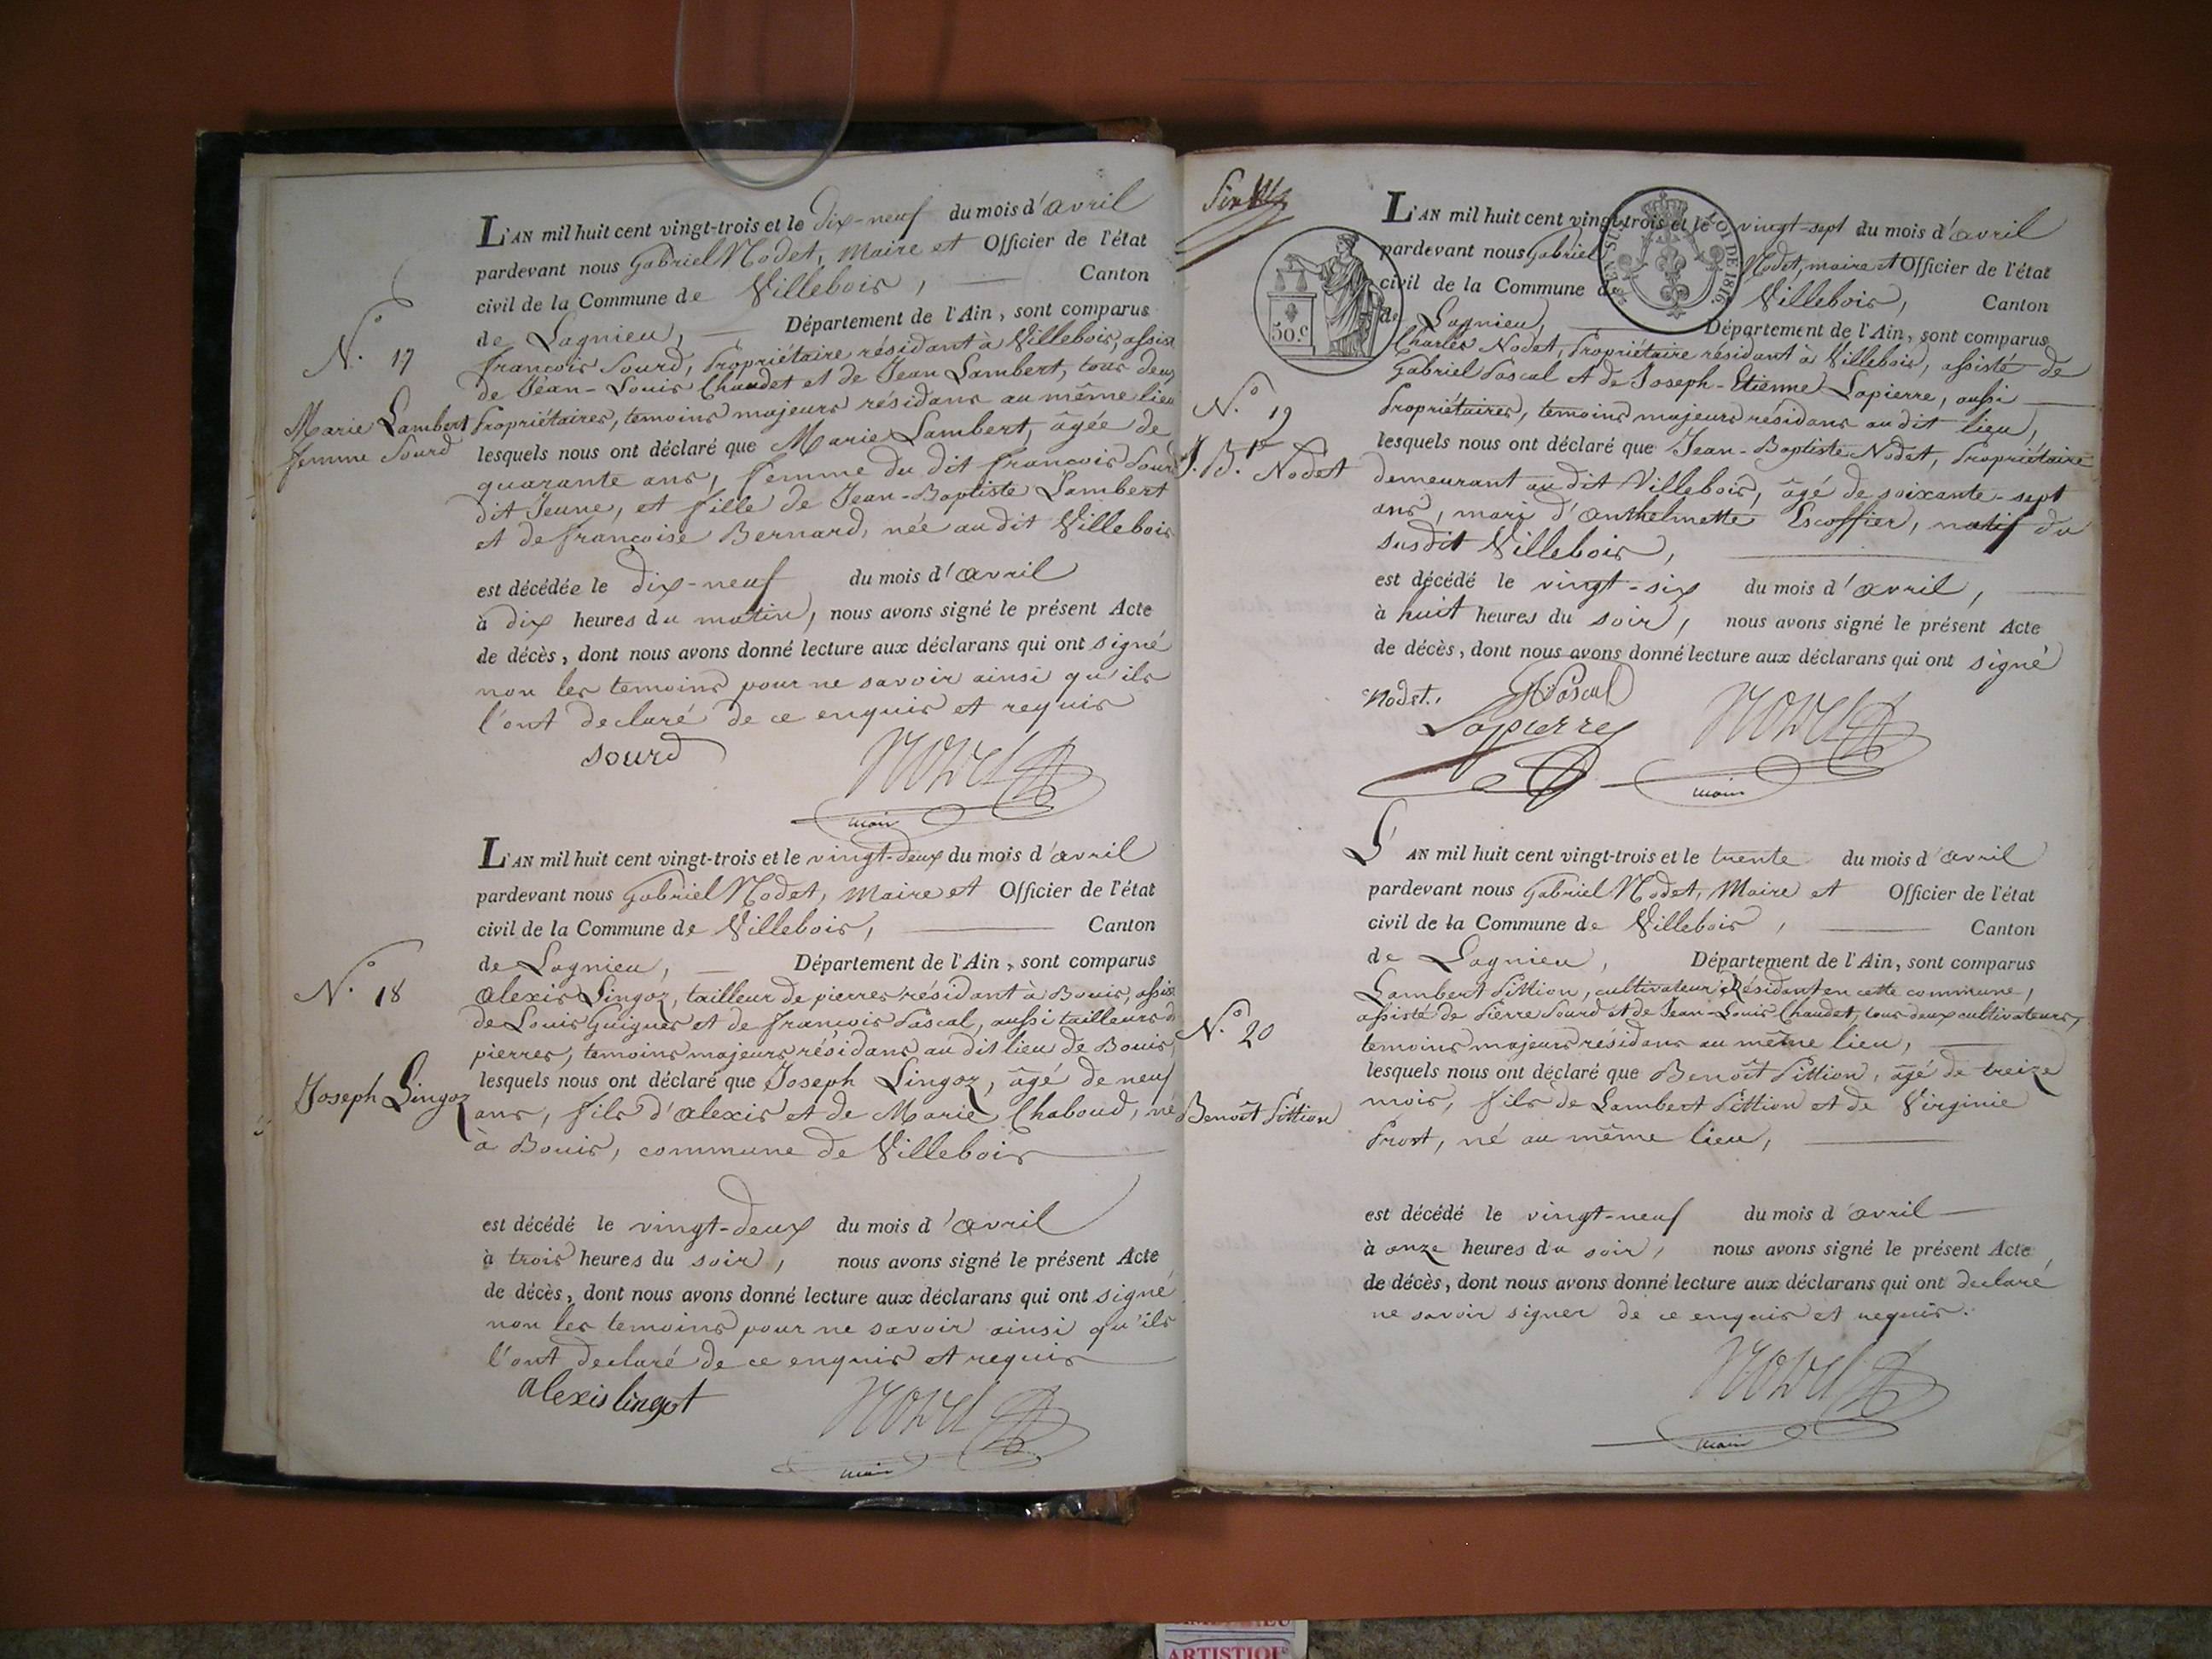 L'AN mil huit cent vingt-trois et le dix-neuf du mois d'avril
pardevant nous Gabriel Nodet, Maire et Officier de l'état
civil de la Commune de Villebois, Canton
de Lagnieu, Département de l'Ain, sont comparus
N.° 17
françois Sourd, Propriétaire résidant à Villebois, assisté
de Jean-Louis Chaudet et de Jean Lambert, tous deux
Marie Lambert
femme Sourd
Propriétaires, temoins majeurs résidans au même lieu
lesquels nous ont déclaré que Marie Lambert, âgée de
quarante ans, femme du dit françois Sourd
dit Jeune, et fille de Jean-Baptiste Lambert
et de françoise Bernard, née au dit Villebois
est décédée le dix-neuf du mois d'avril
à dix heures du matin, nous avons signé le présent Acte
de décès, dont nous avons donné lecture aux déclarans qui ont signé
non les temoins pour ne savoir ainsi qu'ils
l'ont declaré de ce enquis et requis
sourd
NODET
maire
L'AN mil huit cent vingt-trois et le vingt-deux du mois d'avril
pardevant nous Gabriel Nodet, Maire et Officier de l'état
civil de la Commune de Villebois, Canton
de Lagnieu, Département de l'Ain, sont comparus
N.° 18
alexis Lingoz, tailleur de pierres résidant à Bouis, assisté
de Louis Guigues et de françois Pascal, aussi tailleurs de
pierres, temoins majeurs résidans au dit lieu de Bouis,
Joseph Lingoz
lesquels nous ont déclaré que Joseph Lingoz, âgé de neuf
ans, fils d'alexis et de Marie Chaboud, né
à Bouis, commune de Villebois
est décédé le vingt-deux du mois d'avril
à trois heures du soir, nous avons signé le présent Acte
de décès, dont nous avons donné lecture aux déclarans qui ont signé
non les temoins pour ne savoir ainsi qu'ils
l'ont declaré de ce enquis et requis
alexis lingot
NODET
maire
L'AN mil huit cent vingt-trois et le vingt-sept du mois d'avril
pardevant nous Gabriel Nodet, maire et Officier de l'état
civil de la Commune de Villebois, Canton
de Lagnieu, Département de l'Ain, sont comparus
50.c
LOI DE 1816.
Charles Nodet, Propriétaire résidant à Villebois, assisté de
Gabriel Pascal et de Joseph-Etienne Lapierre, aussi
N.° 19
J. B.te Nodet
Propriétaires, temoins majeurs résidans au dit lieu,
lesquels nous ont déclaré que Jean-Baptiste Nodet, Propriétaire
demeurant au dit Villebois, âgé de soixante-sept
ans, mari d'anthelmette Escoffier, natif du
susdit Villebois,
est décédé le vingt-six du mois d'avril,
à huit heures du soir, nous avons signé le présent Acte
de décès, dont nous avons donné lecture aux déclarans qui ont signé
Nodet. Pascal
Lapierre NODET
maire
L'AN mil huit cent vingt-trois et le trente du mois d'avril
pardevant nous Gabriel Nodet, Maire et Officier de l'état
civil de la Commune de Villebois, Canton
de Lagnieu, Département de l'Ain, sont comparus
Lambert Pittion, cultivateur Résidant en cette commune,
assisté de Pierre Sourd et de Jean-Louis Chaudet, tous deux cultivateurs,
N.° 20
temoins majeurs résidans au même lieu,
lesquels nous ont déclaré que Benoît Pittion, âgé de treize
Benoît Pittion
mois, fils de Lambert Pittion et de Virginie
Prost, né au même lieu,
est décédé le vingt-neuf du mois d'avril
à onze heures du soir, nous avons signé le présent Acte
de décès, dont nous avons donné lecture aux déclarans qui ont declaré
ne savoir signer de ce enquis et requis.
NODET
maire